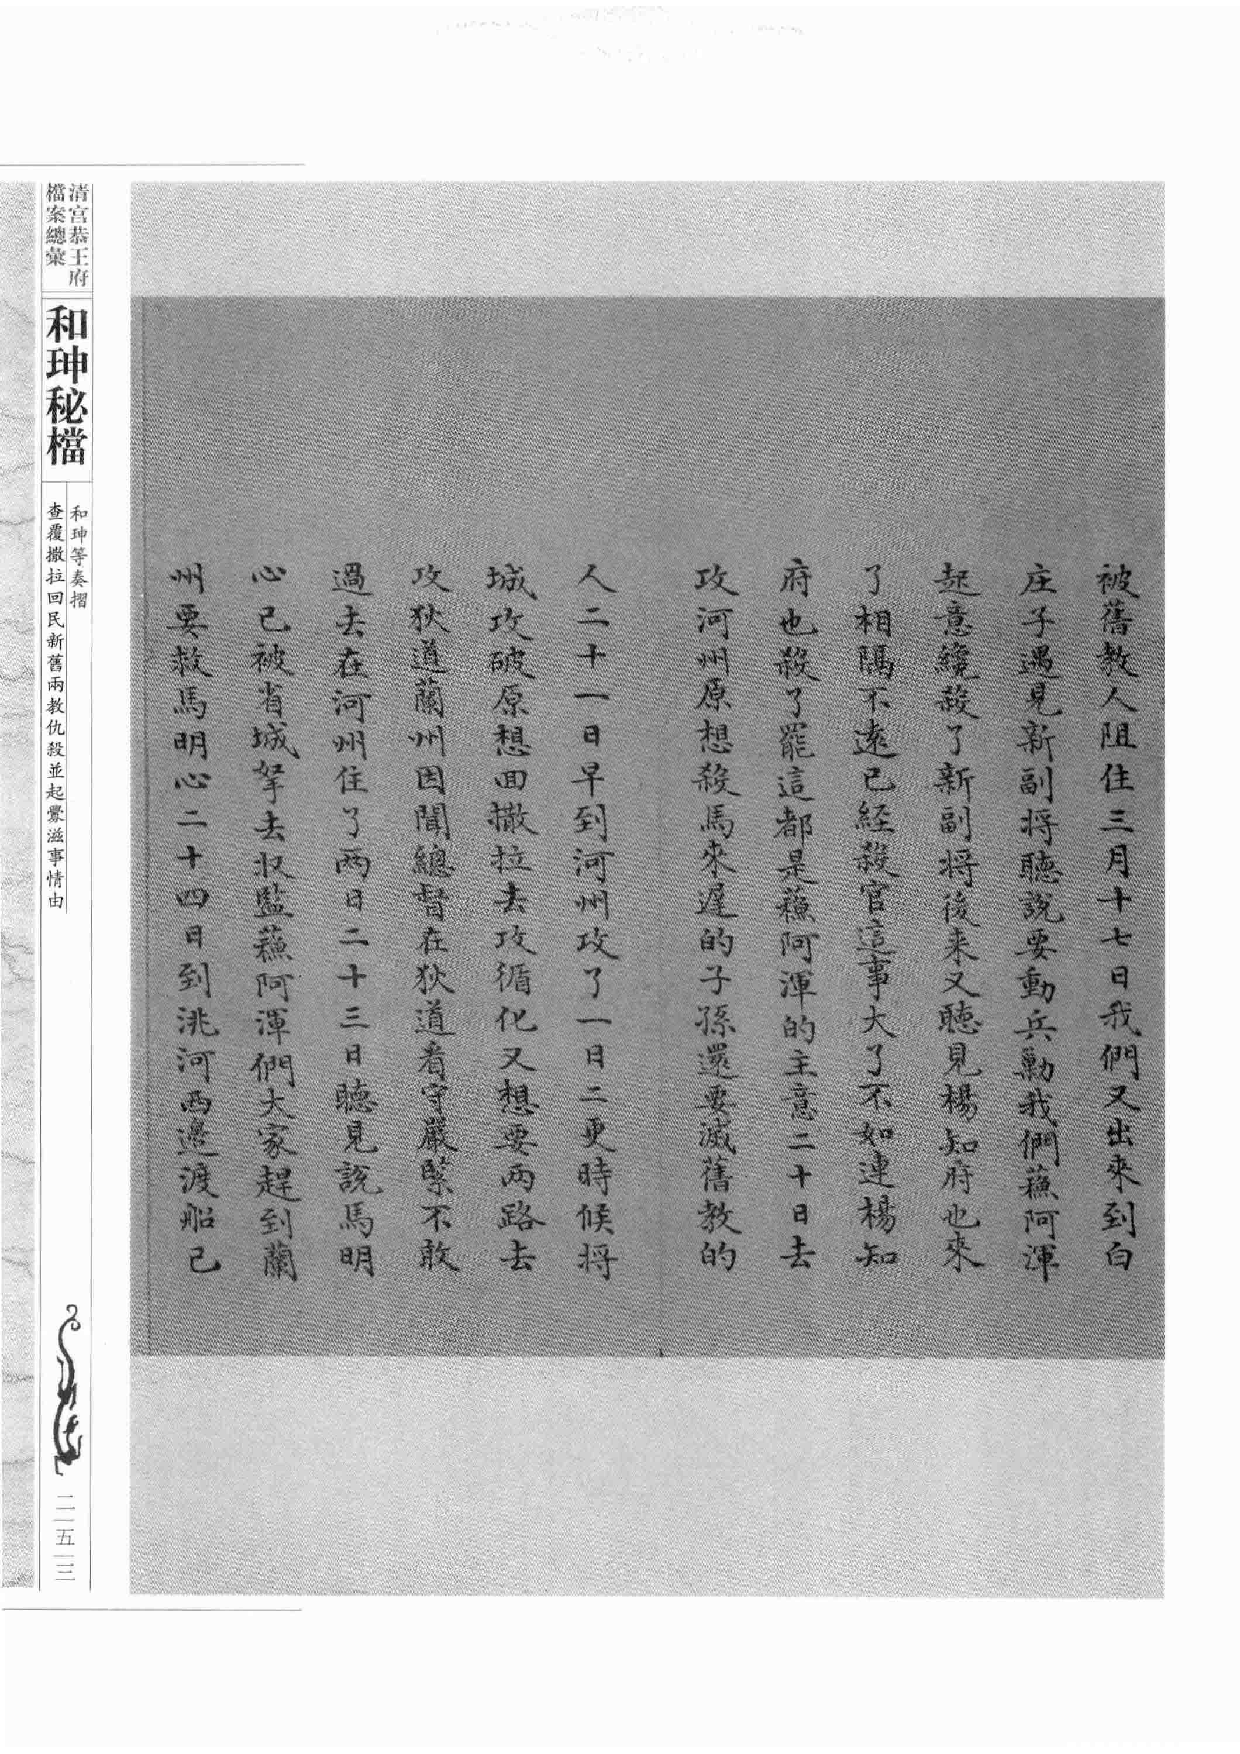 被舊教人阻住三月十七日我們又出來到白
庄子遇見新副將聽說要動兵勦我們蘓阿渾
起意纔殺了新副將後來又聽見楊知府也來
了相隔不遠已經殺官這事大了不如連楊知
府也殺了罷這都是蘓阿渾的主意二十日去
攻河州原想殺馬來遲的子孫還要滅舊教的
人二十一日早到河州攻了一日二更時候將
城攻破原想回撒拉去攻循化又想要两路去
攻狄道蘭州因聞總督在狄道看守嚴緊不敢
過去在河州住了两日二十三日聽見說馬明
心已被省城拏去収監蘓阿渾們大家趕到蘭
州要救馬明心二十四日到洮河西邊渡船已
清宫恭王府
檔案總彙
和珅秘檔
和珅等奏摺
查覆撒拉回民新舊兩教仇殺並起釁滋事情由
二五三